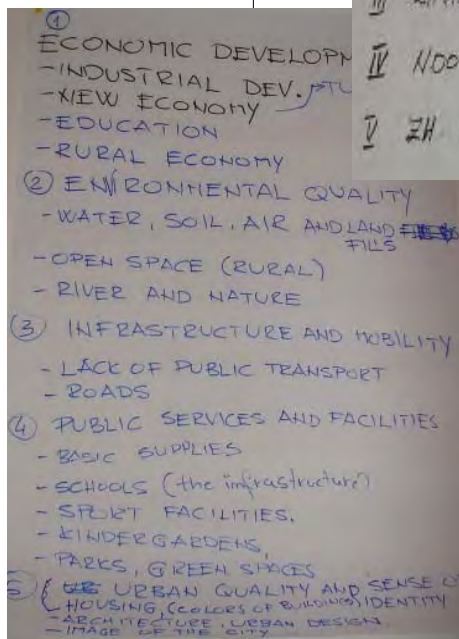 ①
ECONOMIC DEVELOPM
- INDUSTRIAL DEV. TU
- NEW ECONOMY
- EDUCATION
- RURAL ECONOMY
② ENVIRONMENTAL QUALITY
- WATER, SOIL, AIR AND LAND
FILLS
- OPEN SPACE (RURAL)
- RIVER AND NATURE
③ INFRASTRUCTURE AND MOBILITY
- LACK OF PUBLIC TRANSPORT
- ROADS
④ PUBLIC SERVICES AND FACILITIES
- BASIC SUPPLIES
- SCHOOLS (the infrastructure)
- SPORT FACILITIES.
- KINDERGARDENS,
- PARKS, GREEN SPACES
⑤ URBAN QUALITY AND SENSE O
HOUSING, (COLORS OF BUILDINGS) IDENTITY
- ARCHITECTURE, URBAN DESIGN.
- IMAGE OF THE CITY
III
IV NOO
V ZH